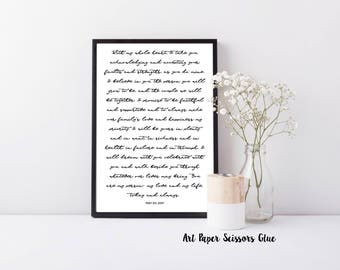 With my whole heart I take you
acknowledging and accepting your
faults and strengths, as you do mine. I
believe in you the person you will
grow to be and the couple we will
be together. I promise to be faithful
and supportive and to always make
our family's love and happiness my
priority. I will be yours in plenty
and in want, in sickness and in
health, in failure and in triumph. I
will dream with you, celebrate with
you and walk beside you through
whatever our lives may bring. You
are my person, my love and my life,
today and always.
Art Paper Scissors Glue